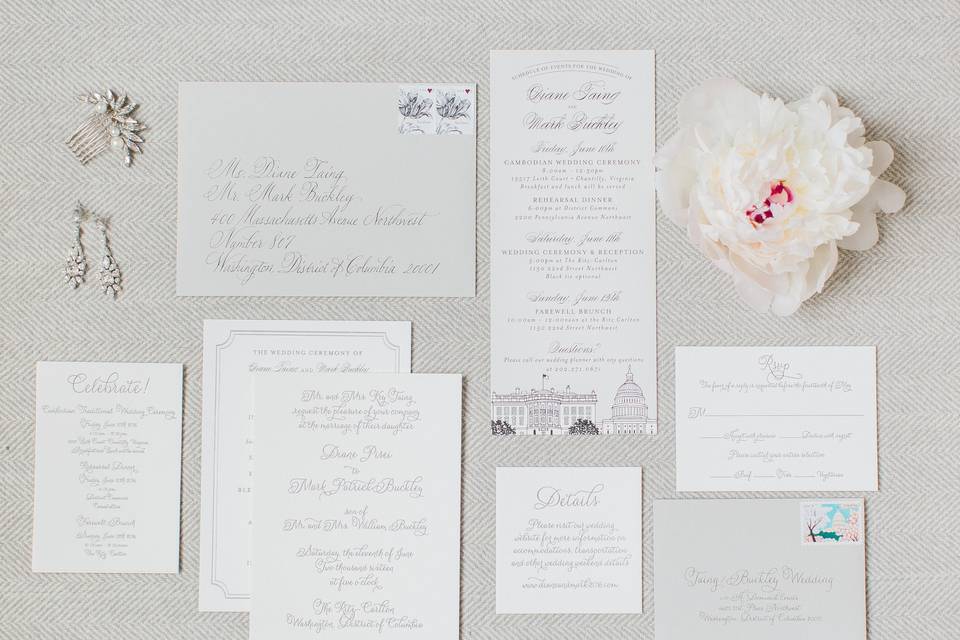 Ms. Diane Taing
Mr. Mark Buckley
400 Massachusetts Avenue Northwest
Number 807
Washington, District of Columbia 20001
SCHEDULE OF EVENTS FOR THE WEDDING OF
Diane Taing
AND
Mark Buckley
Friday, June 10th
CAMBODIAN WEDDING CEREMONY
8:00am - 12:30pm
13517 Leith Court - Chantilly, Virginia
Breakfast and lunch will be served
REHEARSAL DINNER
6:00pm at District Commons
2200 Pennsylvania Avenue Northwest
Saturday, June 11th
WEDDING CEREMONY & RECEPTION
5:00pm at The Ritz-Carlton
1150 22nd Street Northwest
Black tie optional
Sunday, June 12th
FAREWELL BRUNCH
10:00am - 12:00noon at the Ritz Carlton
1150 22nd Street Northwest
Questions?
Please call our wedding planner with any questions
at 202.271.0671
Celebrate!
Cambodian Traditional Wedding Ceremony
Friday, June 10th 2016
Rehearsal Dinner
Friday, June 10th 2016
District Commons
Farewell Brunch
The Ritz Carlton
THE WEDDING CEREMONY OF
Diane Taing AND Mark Buckley
Mr. and Mrs. Ky Taing
request the pleasure of your company
at the marriage of their daughter
Diane Pises
to
Mark Patrick Buckley
son of
Mr. and Mrs. William Buckley
Saturday, the eleventh of June
Two thousand sixteen
at five o'clock
The Ritz-Carlton
Washington, District of Columbia
Details
Please visit our wedding
website for more information on
accommodations, transportation
and other wedding weekend details
www.dianeandmark2016.com
Rsvp
The favor of a reply is requested before the fourteenth of May
M
Accepts with pleasure Declines with regret
Please initial your entree selection
Beef Vegetarian
Taing/Buckley Wedding
Washington, District of Columbia